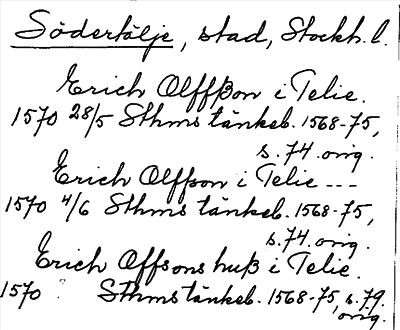 Södertälje, stad, Stockh. l.
Erich Olffßon i Telie.
1570 28/5 Sthms tänkeb. 1568-75,
s. 74. orig.
Erich Olffson i Telie ---
1570 4/6 Sthms tänkeb. 1568-75,
s. 74. orig.
Erich Offsons huß i Telie.
1570 Sthms tänkeb. 1568-75, s. 79.
orig.